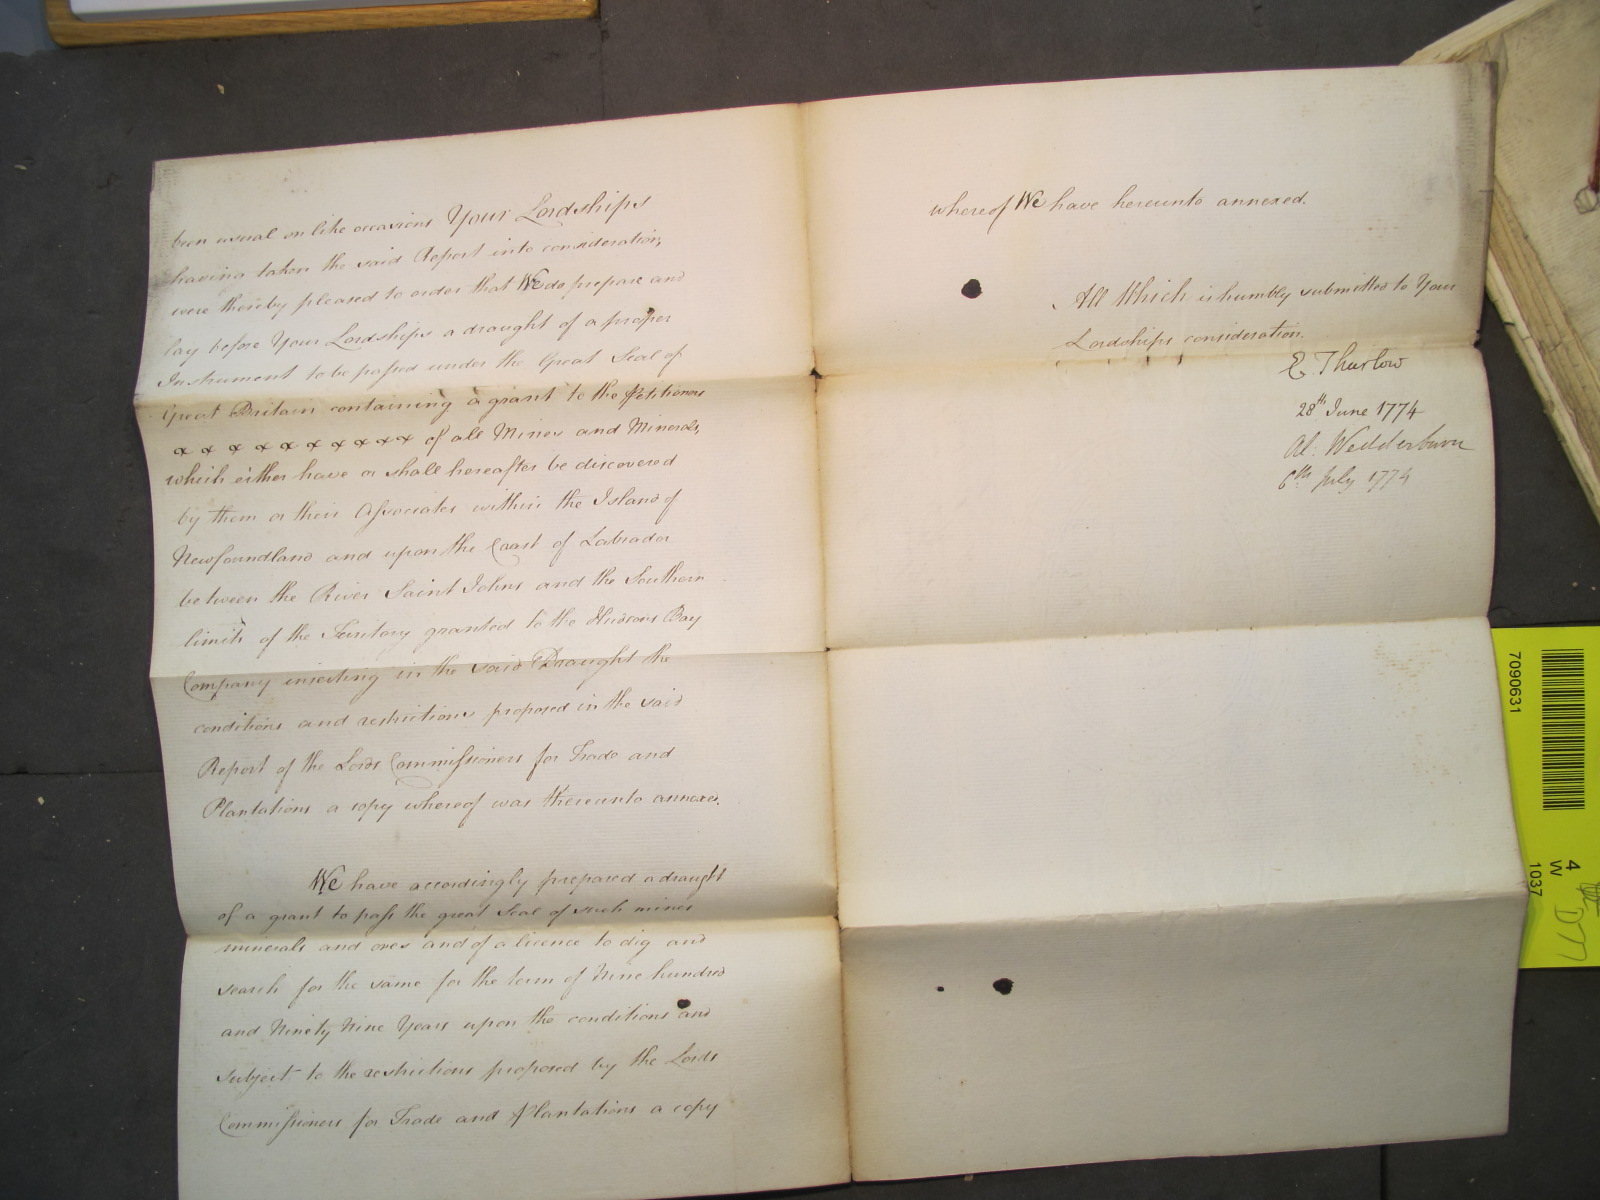 been usual on like occasions Your Lordships
having taken the said Report into consideration,
were thereby pleased to order that We do prepare and
lay before Your Lordships a draught of a proper
Instrument to be passed under the Great Seal of
Great Britain containing a grant to the Petitioners
x x x x x x x x x x of all Mines and Minerals,
which either have or shall hereafter be discovered
by them or their Associates within the Island of
Newfoundland and upon the Coast of Labrador
between the River Saint Johns and the Southern
limits of the Territory granted to the Hudsons Bay
Company inserting in the said Draught the
conditions and restrictions proposed in the said
Report of the Lords Commissioners for Trade and
Plantations a copy whereof was thereunto annexed.
We have accordingly prepared a draught
of a grant to pass the great Seal of such mines
minerals and ores and of a licence to dig and
search for the same for the term of Nine hundred
and Ninety Nine Years upon the conditions and
subject to the restrictions proposed by the Lords
Commissioners for Trade and Plantations a copy
whereof We have hereunto annexed.
All Which is humbly submitted to Your
Lordships consideration.
E. Thurlow
28th June 1774
Al. Wedderburn
6th July 1774
7090631
4
W
1037
D77